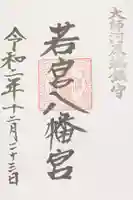 大師河原鎮守
若宮八幡宮
令和二年十二月二十三日